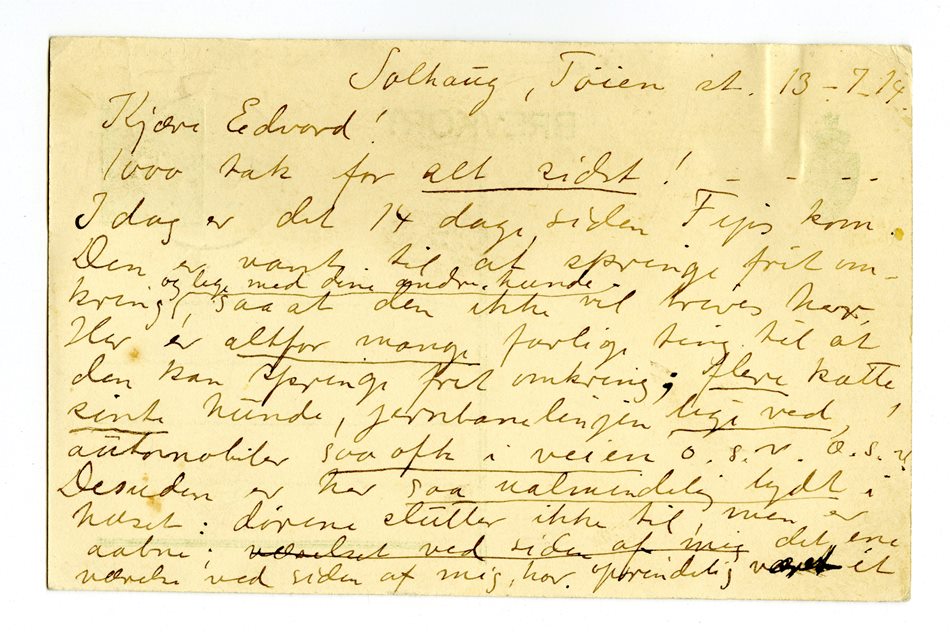 Solhaug, Tøien st. 13-7-14.
Kjære Edvard!
1000 tak for alt sidst! - - - -
I dag er det 14 dage siden Fips kom.
Den er vant til at springe frit om-
og lege med dine andre hunde
kring, saa at den ikke vil trives her.
Her er altfor mange farlige ting til at
den kan springe frit omkring; flere katte,
sinte hunde, jernbanelinjen lige ved,
automobiler saa ofte i veien o.s.v. o.s.v.
Desuden er her saa ualmindelig lydt i
huset: dørene slutter ikke til, men er
aabne; værelset ved siden af mig det ene
værelse ved siden af mig, har oprindelig været ét